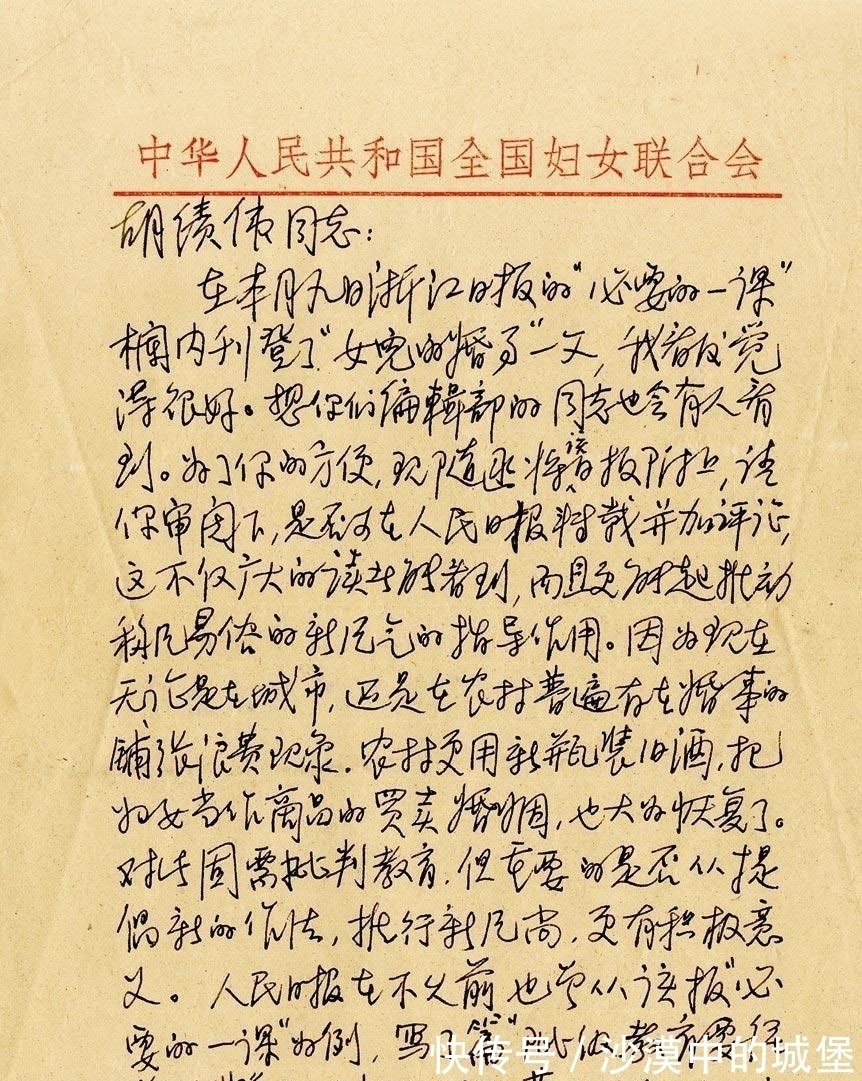 中华人民共和国全国妇女联合会
胡绩伟同志:
在本月九日浙江日报的"必要的一课"
栏内刊登了"女儿的婚事"一文,我看后觉
得很好。想你们编辑部的同志也会有人看
到。为了你的方便,现随函将该报附上,请
你审阅下,是否可在人民日报转载并加评论,
这不仅广大的读者能看到,而且更能起推动
移风易俗的新风气的指导作用。因为现在
无论是在城市,还是在农村普遍存在婚事的
铺张浪费现象。农村更用新瓶装旧酒,把
妇女当作商品的买卖婚姻,也大为恢复了。
对此固需批判教育,但重要的是否从提
倡新的作法,推行新风尚,更有积极意
义。人民日报在不久前也曾从该报"必
要的一课"为例,写了篇
快传号/沙漠中的城堡